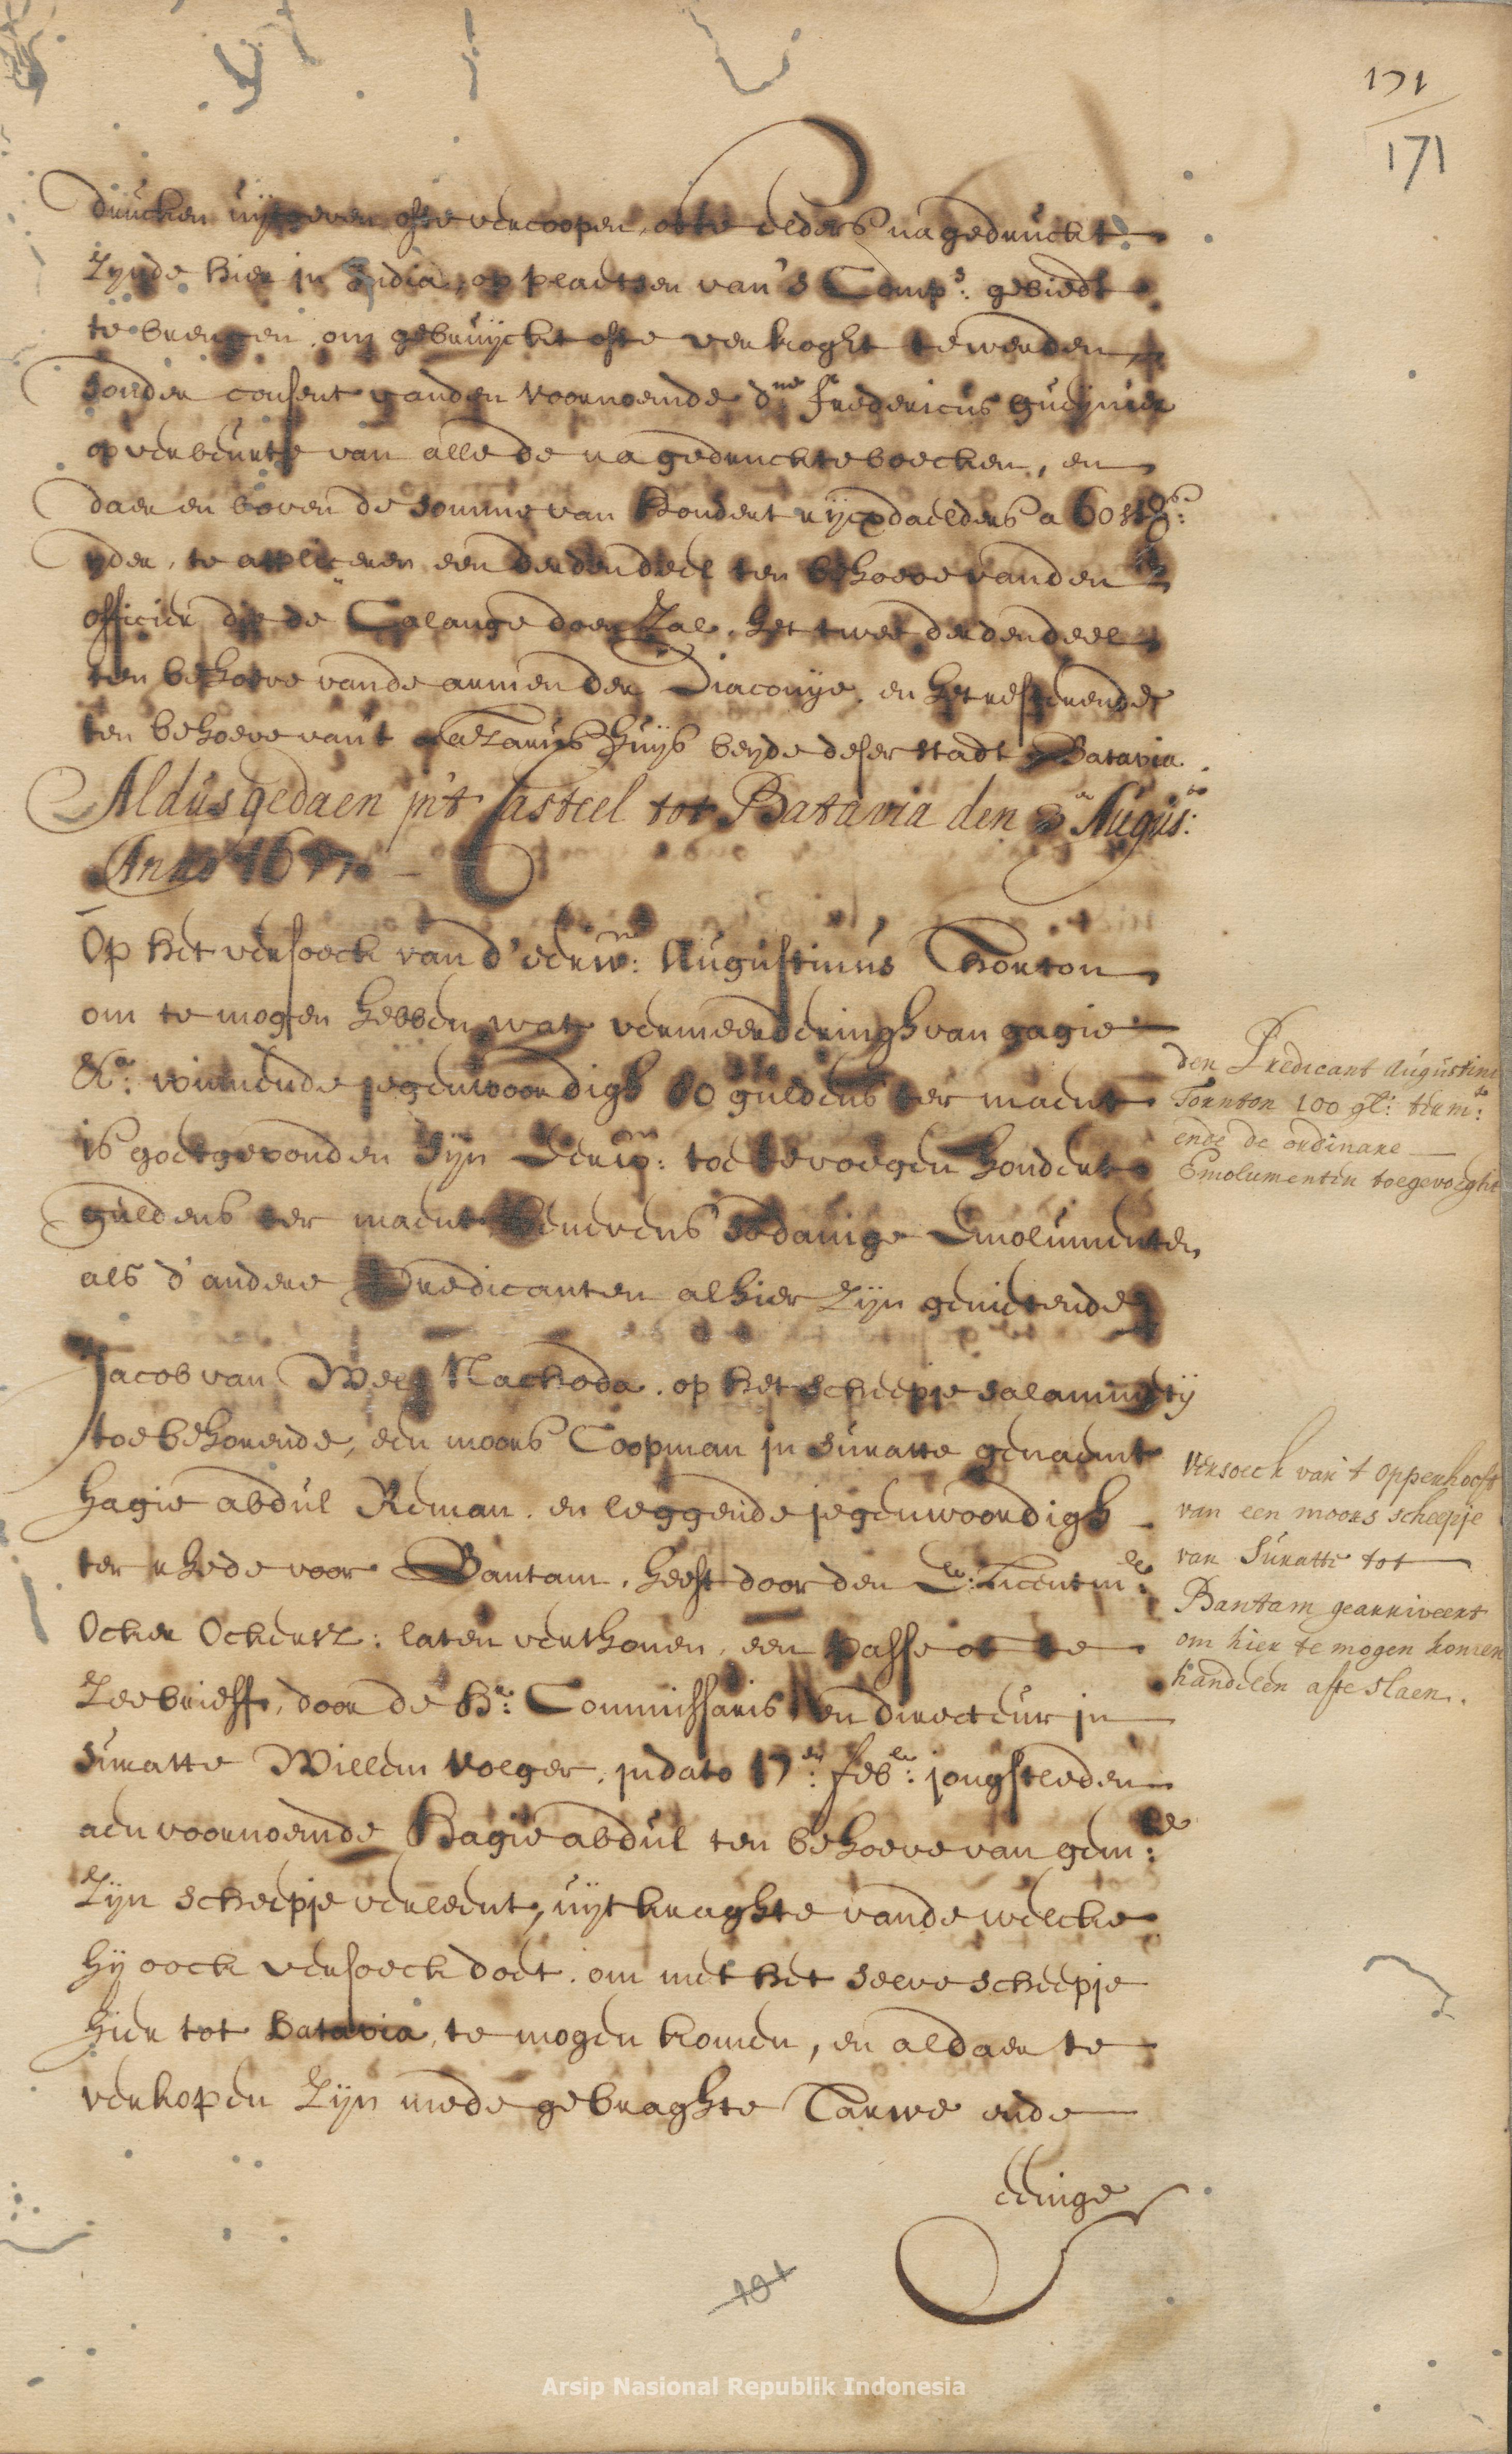 171
171
drucken uijtgeven ofte vercoopen, ofte elders nagedruckt
zynde hier in India, op plaetsen van 's Comps: gebiedt
te brengen, om gebruijckt ofte verkoght te werden,
sonder consent vanden voornoemde dne fredericus Gueijnier
op verbeurte van alle de nagedruckte boecken, en
daer en boven de somme van hondert rijcxdaelders a 60 sts:
yder, te appliceren een derdendeel ten behoeve vanden
officier die de Calange doen zal, het twee derdendeel
ten behoeve vande armen der Diaconije, en het resterende
ten behoeve van't Lazarus huijs beyde deser stadt Batavia.
Aldus gedaen in't Casteel tot Batavia den Augus:
Anno 1677 –
Op het versoeck van d' eerw: Augustinus Thornton
om te mogen hebben wat vermeerderingh van gagie
&a: winnende jegenwoordigh 80 guldens ter maent
is goetgevonden sijn Eerw: toe te voegen hondert
guldens ter maent benevens sodanige Emolumenten
als d' andere Predicanten alhier zijn genietende
Jacob van Nachoda, op het scheepje salammetij
toebehorende, een moors Coopman in suratte genaemt
hagie abdul Reman, en leggende jegenwoordigh
ter rhede voor Bantam, heeft door den E: Licentmr:
Ocker Ockersz: laten verthonen, een passe ofte
Zeebrieff, door de Hr: Commissaris en directeur in
suratte Willem Volger, in dato 17en: febr: jongstleden
aen voornoemde Hagie abdul ten behoeve van gemde:
zijn scheepje verleent, uijt kraghte vande welcke
hij oock versoeck doet, om met het selve scheepje
hier tot Batavia, te mogen komen, en aldaer te
verkopen zijn mede gebraghte Tarwe ende
eenige
den Predicant Augustinus
Tornton 100 gl: ter m:
ende de ordinare
Emolumenten toegevoeght
Versoeck van't opperhooft
van een moors scheepje
van Suratte tot
Bantam gearriveert
om hier te mogen komen
handelen afteslaen.
101
Arsip Nasional Republik Indonesia